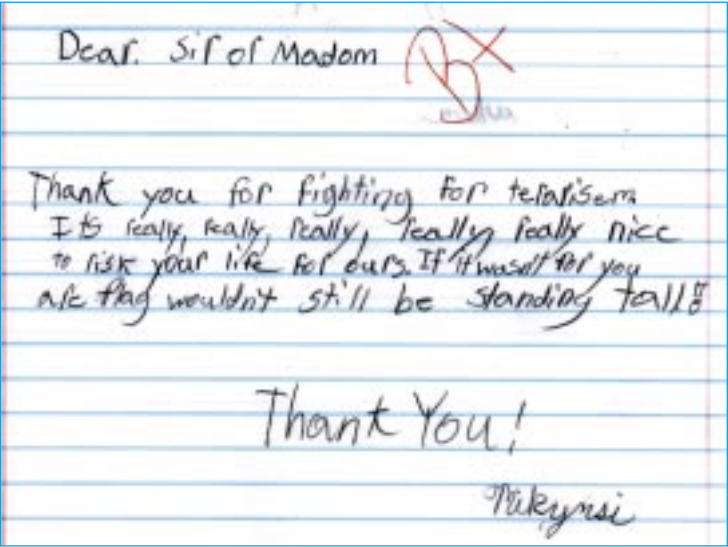 Dear. Sir or Madom
B+
Thank you for fighting for terarisem
Its really, really, really, really, really nice
to risk your life for ours. If it wasn't for you
are flag wouldn't still be standing tall!!
Thank You!